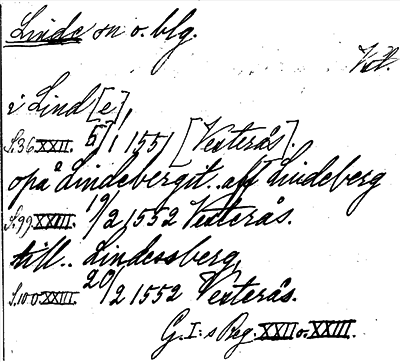 Linde sn o. blg.
Vstl.
i Lind [e],
S.36.XXII. 5/1 1551 [Vesterås].
opå Lindebergit.. aff Lindeberg
S.99 XXIII. 19/2 1552 Vesterås.
till.. Lindessberg,
S.100.XXIII. 20/2 1552 Vesterås.
G.I:s Reg. XXII o. XXIII.